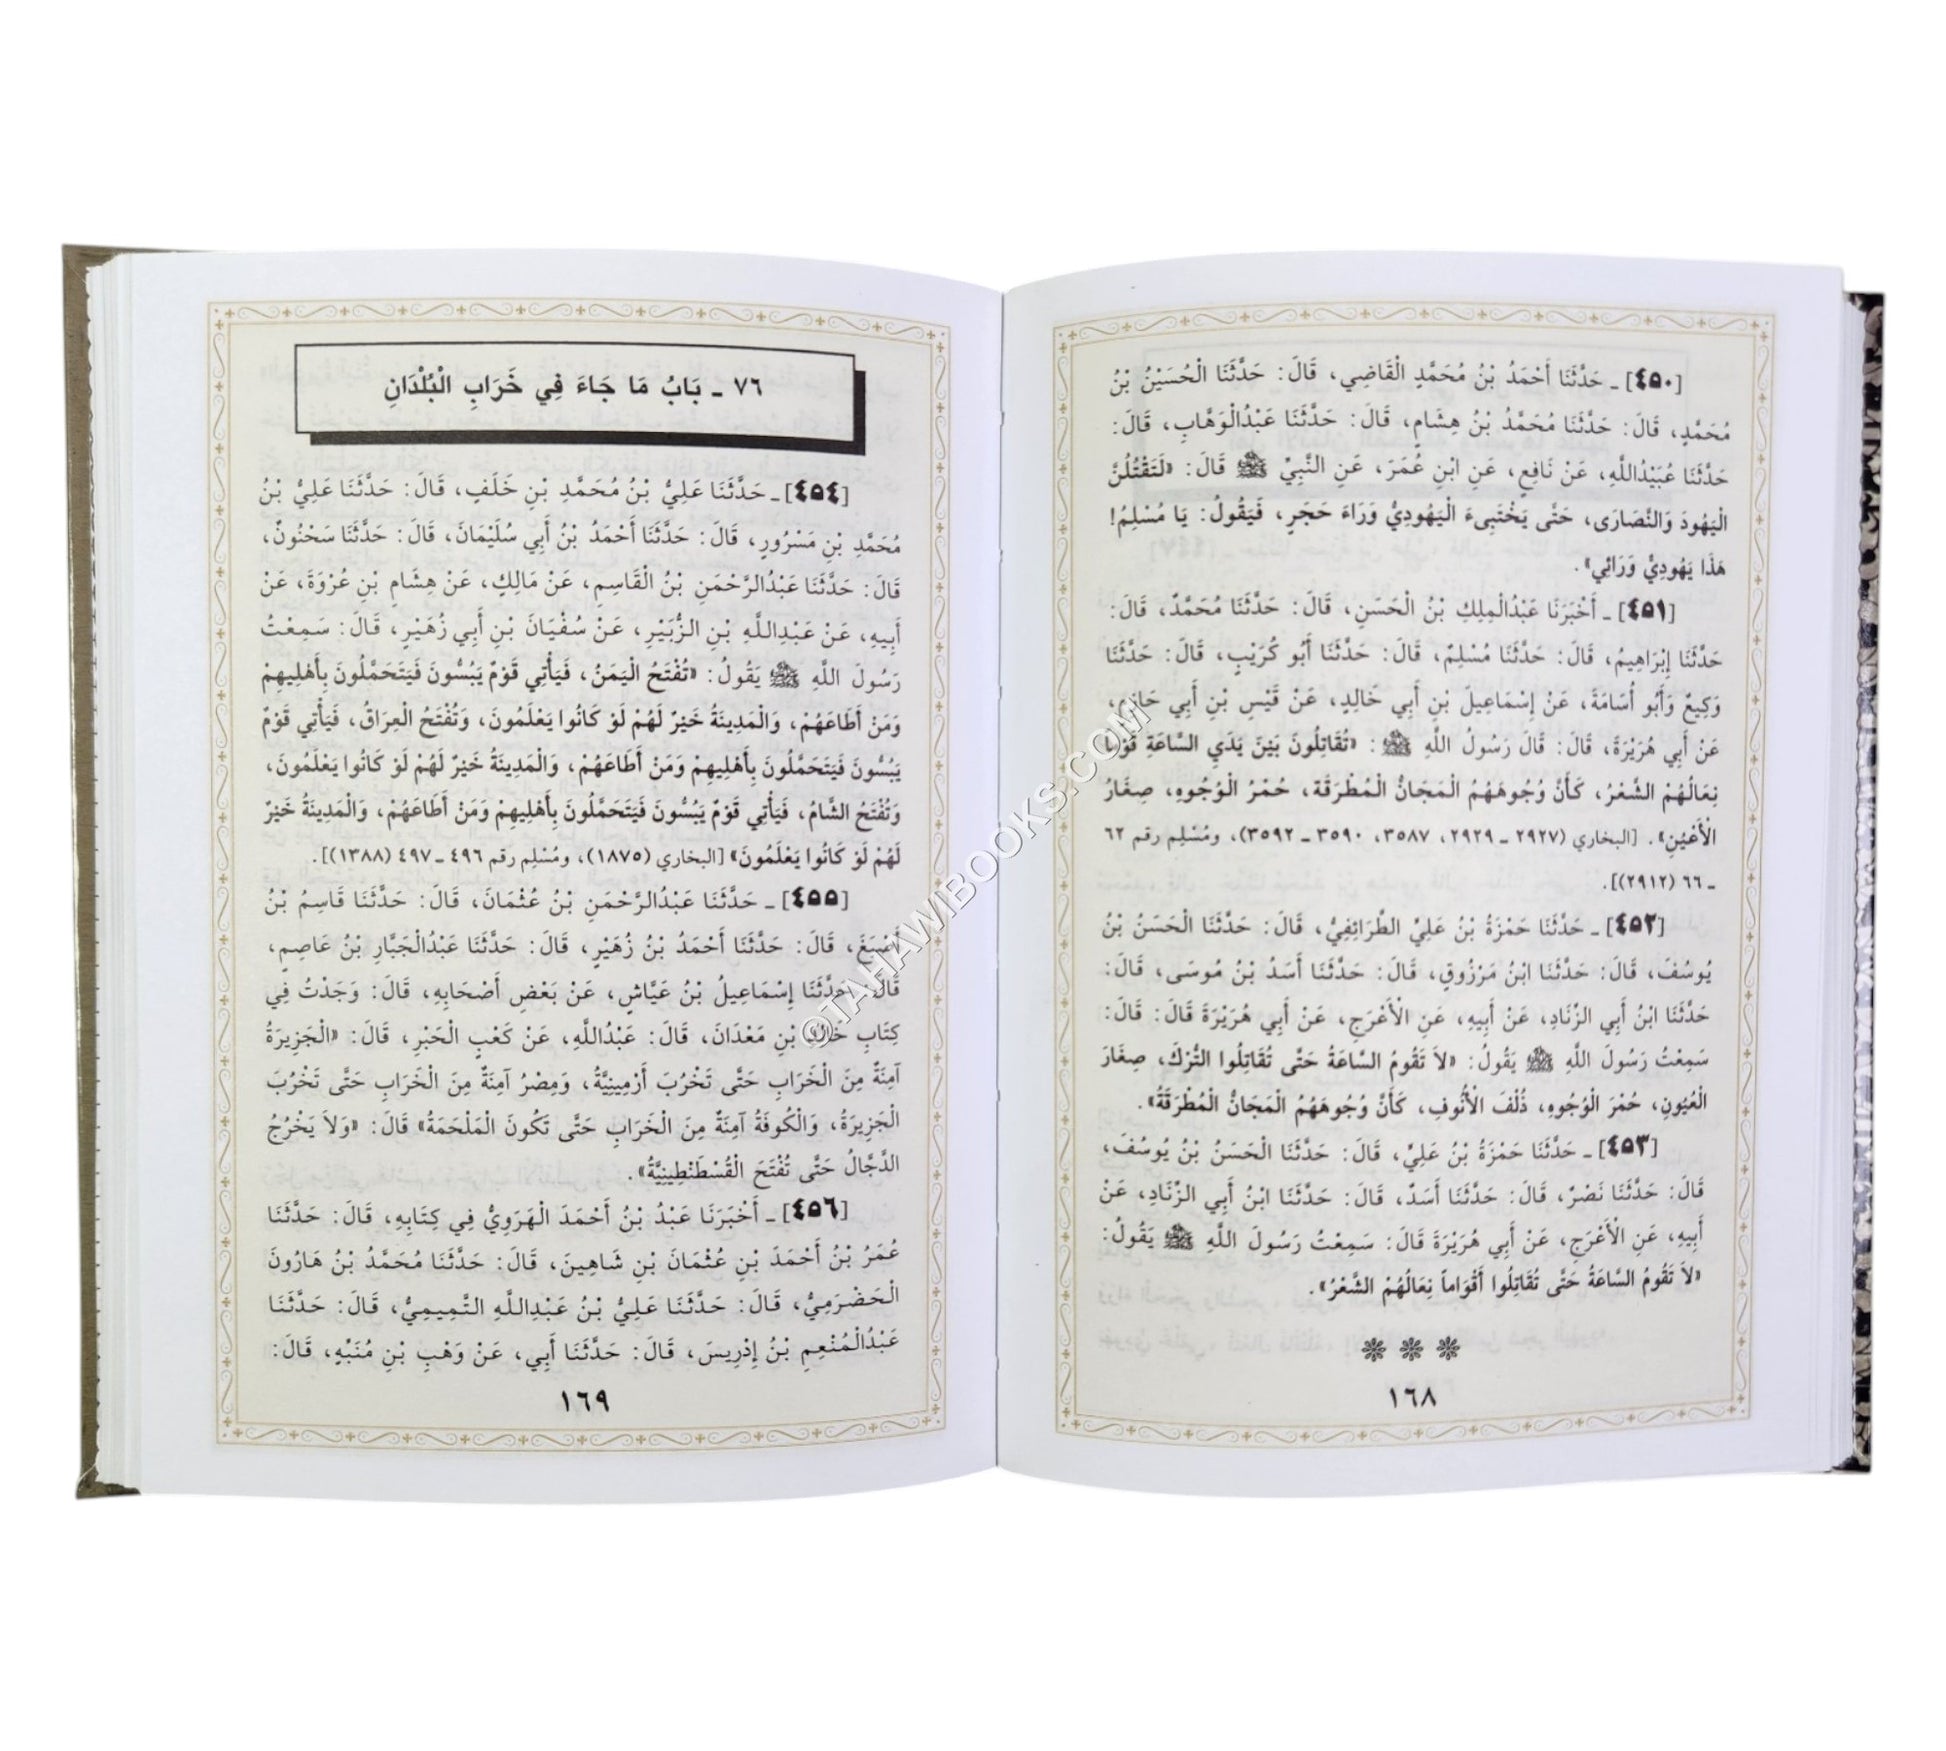 [٤٥٠] ـ حَدَّثَنَا أَحْمَدُ بْنُ مُحَمَّدٍ الْقَاضِي، قَالَ: حَدَّثَنَا الْحُسَيْنُ بْنُ
مُحَمَّدٍ، قَالَ: حَدَّثَنَا مُحَمَّدُ بْنُ هِشَامٍ، قَالَ: حَدَّثَنَا عَبْدُالْوَهَّابِ، قَالَ:
حَدَّثَنَا عُبَيْدُاللَّهِ، عَنْ نَافِعٍ، عَنِ ابْنِ عُمَرَ، عَنِ النَّبِيِّ ﷺ قَالَ: «لَتَقْتُلُنَّ
الْيَهُودَ وَالنَّصَارَى، حَتَّى يَخْتَبِىءَ الْيَهُودِيُّ وَرَاءَ حَجَرٍ، فَيَقُولُ: يَا مُسْلِمُ!
هَذَا يَهُودِيٌّ وَرَائِي».
[٤٥١] ـ أَخْبَرَنَا عَبْدُالْملِكِ بْنُ الْحَسَنِ، قَالَ: حَدَّثَنَا مُحَمَّدٌ، قَالَ:
حَدَّثَنَا إِبْرَاهِيمُ، قَالَ: حَدَّثَنَا مُسْلِمٌ، قَالَ: حَدَّثَنَا أَبُو كُرَيْبٍ، قَالَ: حَدَّثَنَا
وَكِيعٌ وَأَبُو أُسَامَةَ، عَنْ إِسْمَاعِيلَ بْنِ أَبِي خَالِدٍ، عَنْ قَيْسِ بْنِ أَبِي حَازِمٍ،
عَنْ أَبِي هُرَيْرَةَ، قَالَ: قَالَ رَسُولُ اللَّهِ ﷺ: «تُقَاتِلُونَ بَيْنَ يَدَيِ السَّاعَةِ قَوْماً
نِعَالُهُمْ الشَّعْرُ، كَأَنَّ وُجُوهَهُمُ الْمَجَانُّ الْمُطْرَقَة، حُمْرُ الْوُجُوهِ، صِغَارُ
الْأَعْيُنِ». [البخاري (٢٩٢٧ ـ ٢٩٢٩، ٣٥٨٧، ٣٥٩٠ ـ ٣٥٩٢)، ومُسْلِم رقم ٦٢
ـ ٦٦ (٢٩١٢)].
[٤٥٢] ـ حَدَّثَنَا حَمْزَةُ بْنُ عَلِيٍّ الطَّرَائِفِيُّ، قَالَ: حَدَّثَنَا الْحَسَنُ بْنُ
يُوسُفَ، قَالَ: حَدَّثَنَا ابْنُ مَرْزُوقٍ، قَالَ: حَدَّثَنَا أَسَدُ بْنُ مُوسَى، قَالَ:
حَدَّثَنَا ابْنُ أَبِي الزِّنَادِ، عَنْ أَبِيهِ، عَنِ الْأَعْرَجِ، عَنْ أَبِي هُرَيْرَةَ قَالَ: قَالَ:
سَمِعْتُ رَسُولَ اللَّهِ ﷺ يَقُولُ: «لاَ تَقُومُ السَّاعَةُ حَتَّى تُقَاتِلُوا التُّرْكَ، صِغَارَ
الْعُيُونِ، حُمْرَ الْوُجُوهِ، ذُلْفَ الْأُنُوفِ، كَأَنَّ وُجُوهَهُمُ الْمَجَانُّ الْمُطْرَقَةُ».
[٤٥٣] ـ حَدَّثَنَا حَمْزَةُ بْنُ عَلِيٍّ، قَالَ: حَدَّثَنَا الْحَسَنُ بْنُ يُوسُفَ،
قَالَ: حَدَّثَنَا نَصْرٌ، قَالَ: حَدَّثَنَا أَسَدٌ، قَالَ: حَدَّثَنَا ابْنُ أَبِي الزِّنَادِ، عَنْ
أَبِيهِ، عَنِ الْأَعْرَجِ، عَنْ أَبِي هُرَيْرَةَ قَالَ: سَمِعْتُ رَسُولَ اللَّهِ ﷺ يَقُولُ:
«لاَ تَقُومُ السَّاعَةُ حَتَّى تُقَاتِلُوا أَقْوَاماً نِعَالُهُمْ الشَّعْرُ».
١٦٨
٧٦ ـ بَابُ مَا جَاءَ فِي خَرَابِ الْبُلْدَانِ
[٤٥٤] ـ حَدَّثَنَا عَلِيُّ بْنُ مُحَمَّدِ بْنِ خَلَفٍ، قَالَ: حَدَّثَنَا عَلِيُّ بْنُ
مُحَمَّدِ بْنِ مَسْرُورٍ، قَالَ: حَدَّثَنَا أَحْمَدُ بْنُ أَبِي سُلَيْمَانَ، قَالَ: حَدَّثَنَا سَحْنُونٌ،
قَالَ: حَدَّثَنَا عَبْدُالرَّحْمَنِ بْنُ الْقَاسِمِ، عَنْ مَالِكٍ، عَنْ هِشَامِ بْنِ عُرْوَةَ، عَنْ
أَبِيهِ، عَنْ عَبْدِاللَّهِ بْنِ الزُّبَيْرِ، عَنْ سُفْيَانَ بْنِ أَبِي زُهَيْرٍ، قَالَ: سَمِعْتُ
رَسُولَ اللَّهِ ﷺ يَقُولُ: «تُفْتَحُ الْيَمَنُ، فَيَأْتِي قَوْمٌ يَبُسُّونَ فَيَتَحَمَّلُونَ بِأَهْلِيهِمْ
وَمَنْ أَطَاعَهُمْ، وَالْمَدِينَةُ خَيْرٌ لَهُمْ لَوْ كَانُوا يَعْلَمُونَ، وَتُفْتَحُ الْعِرَاقُ، فَيَأْتِي قَوْمٌ
يَبُسُّونَ فَيَتَحَمَّلُونَ بِأَهْلِيهِمْ وَمَنْ أَطَاعَهُمْ، وَالْمَدِينَةُ خَيْرٌ لَهُمْ لَوْ كَانُوا يَعْلَمُونَ،
وَتُفْتَحُ الشَّامُ، فَيَأْتِي قَوْمٌ يَبُسُّونَ فَيَتَحَمَّلُونَ بِأَهْلِيهِمْ وَمَنْ أَطَاعَهُمْ، وَالْمَدِينَةُ خَيْرٌ
لَهُمْ لَوْ كَانُوا يَعْلَمُونَ» [البخاري (١٨٧٥)، ومُسْلِم رقم ٤٩٦ ـ ٤٩٧ (١٣٨٨)].
[٤٥٥] ـ حَدَّثَنَا عَبْدُالرَّحْمَنِ بْنُ عُثْمَانَ، قَالَ: حَدَّثَنَا قَاسِمُ بْنُ
أَصْبَغَ، قَالَ: حَدَّثَنَا أَحْمَدُ بْنُ زُهَيْرٍ، قَالَ: حَدَّثَنَا عَبْدُالْجَبَّارِ بْنُ عَاصِمٍ،
قَالَ: حَدَّثَنَا إِسْمَاعِيلُ بْنُ عَيَّاشٍ، عَنْ بَعْضِ أَصْحَابِهِ، قَالَ: وَجَدْتُ فِي
كِتَابِ خَالِدِ بْنِ مَعْدَانَ، قَالَ: عَبْدُاللَّهِ، عَنْ كَعْبٍ الْحَبْرِ، قَالَ: «الْجَزِيرَةُ
آمِنَةٌ مِنَ الْخَرَابِ حَتَّى تَخْرُبَ أَرْمِينِيَّةُ، وَمِصْرُ آمِنَةٌ مِنَ الْخَرَابِ حَتَّى تَخْرُبَ
الْجَزِيرَةُ، وَالْكُوفَةُ آمِنَةٌ مِنَ الْخَرَابِ حَتَّى تَكُونَ الْمَلْحَمَةُ» قَالَ: «وَلاَ يَخْرُجُ
الدَّجَّالُ حَتَّى تُفْتَحَ الْقُسْطَنْطِينِيَّةُ».
[٤٥٦] ـ أَخْبَرَنَا عَبْدُ بْنُ أَحْمَدَ الْهَرَوِيُّ فِي كِتَابِهِ، قَالَ: حَدَّثَنَا
عُمَرُ بْنُ أَحْمَدَ بْنِ عُثْمَانَ بْنِ شَاهِينَ، قَالَ: حَدَّثَنَا مُحَمَّدُ بْنُ هَارُونَ
الْحَضْرَمِيُّ، قَالَ: حَدَّثَنَا عَلِيُّ بْنُ عَبْدِاللَّهِ التَّمِيمِيُّ، قَالَ: حَدَّثَنَا
عَبْدُالْمُنْعِمِ بْنُ إِدْرِيسَ، قَالَ: حَدَّثَنَا أَبِي، عَنْ وَهْبِ بْنِ مُنَبِّهٍ، قَالَ:
١٦٩
©TAHAWIBOOKS.COM